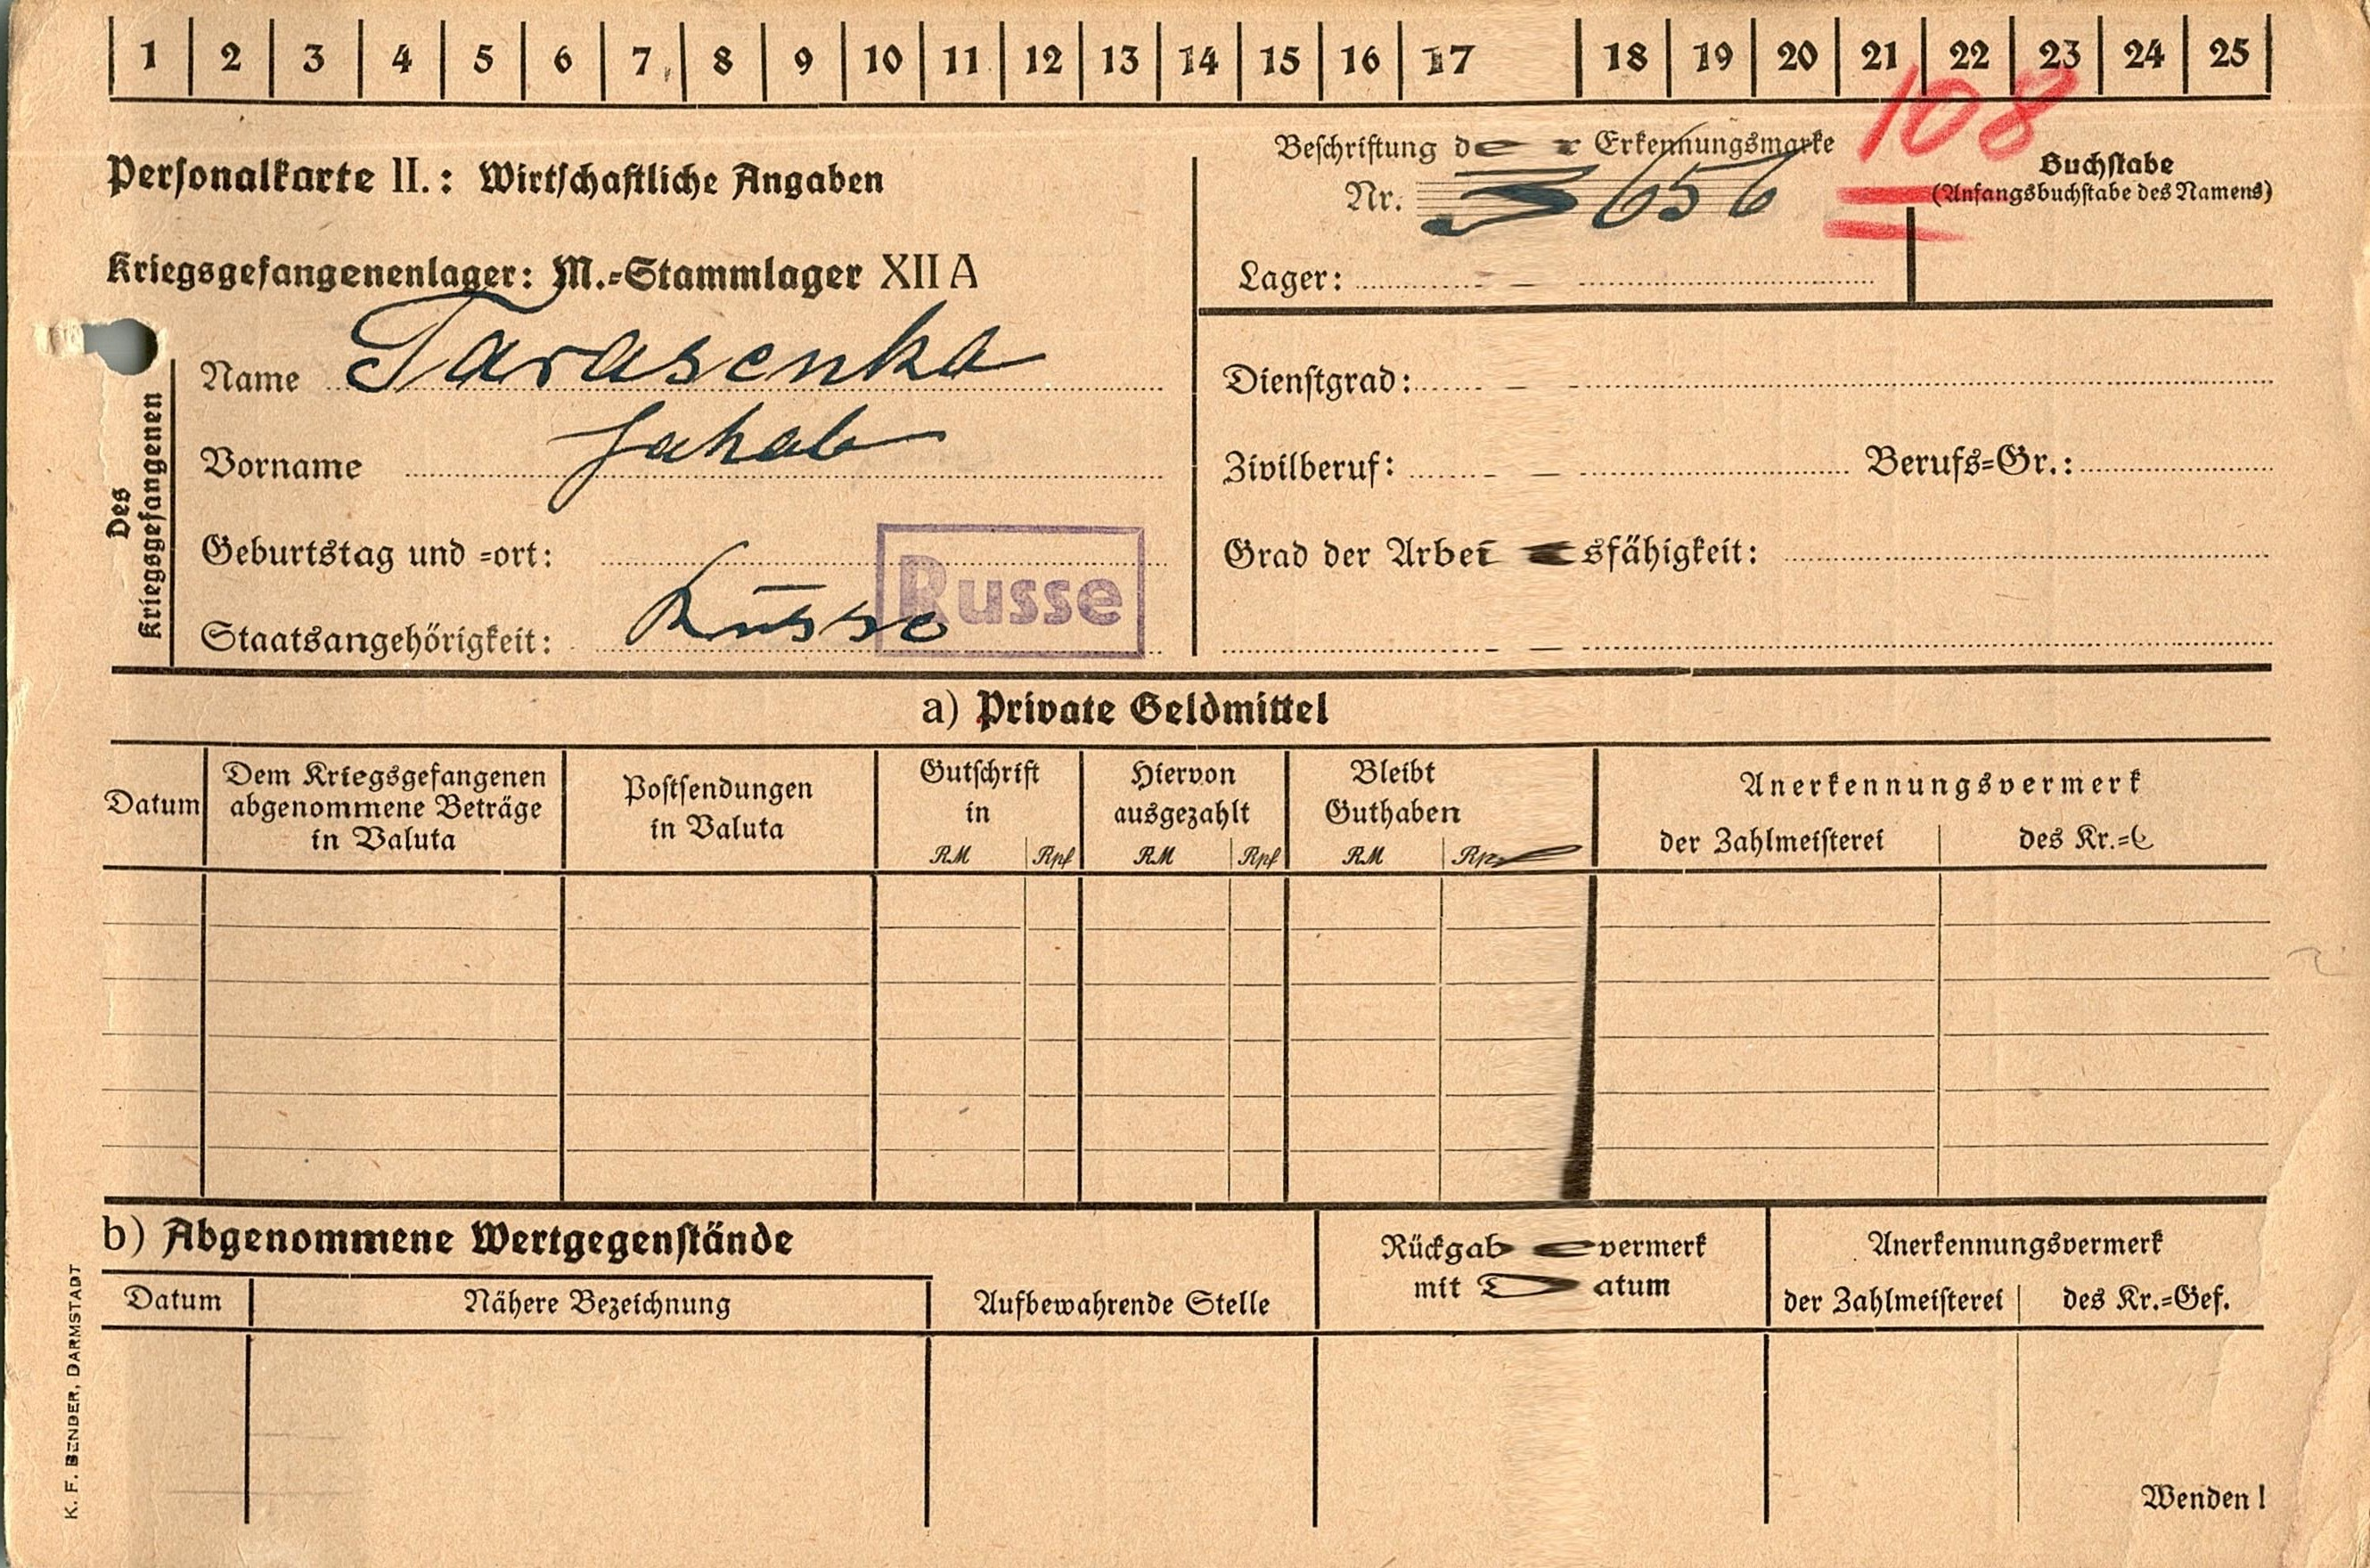 1 2 3 4 5 6 7 8 9 10 11 12 13 14 15 16 17 18 19 20 21 22 23 24 25
108
Personalkarte II.: Wirtschaftliche Angaben
Kriegsgefangenenlager: M.-Stammlager XII A
Beschriftung der Erkennungsmarke
Nr. 656
Lager:
Buchstabe
(Anfangsbuchstabe des Namens)
Des Kriegsgefangenen
Name Tarasenko
Vorname Jakob
Geburtstag und -ort:
Staatsangehörigkeit: Russe
Russe
Dienstgrad:
Zivilberuf: Berufs-Gr.:
Grad der Arbeitsfähigkeit:
a) Private Geldmittel
Datum
Dem Kriegsgefangenen
abgenommene Beträge
in Valuta
Postsendungen
in Valuta
Gutschrift
in
RM Rpf
Hiervon
ausgezahlt
RM Rpf
Bleibt
Guthaben
RM Rp
Anerkennungsvermerk
der Zahlmeisterei des Kr.-G
b) Abgenommene Wertgegenstände
Datum Nähere Bezeichnung
Aufbewahrende Stelle
Rückgabevermerk
mit Datum
Anerkennungsvermerk
der Zahlmeisterei des Kr.-Gef.
Wenden!
K. F. BENDER, DARMSTADT